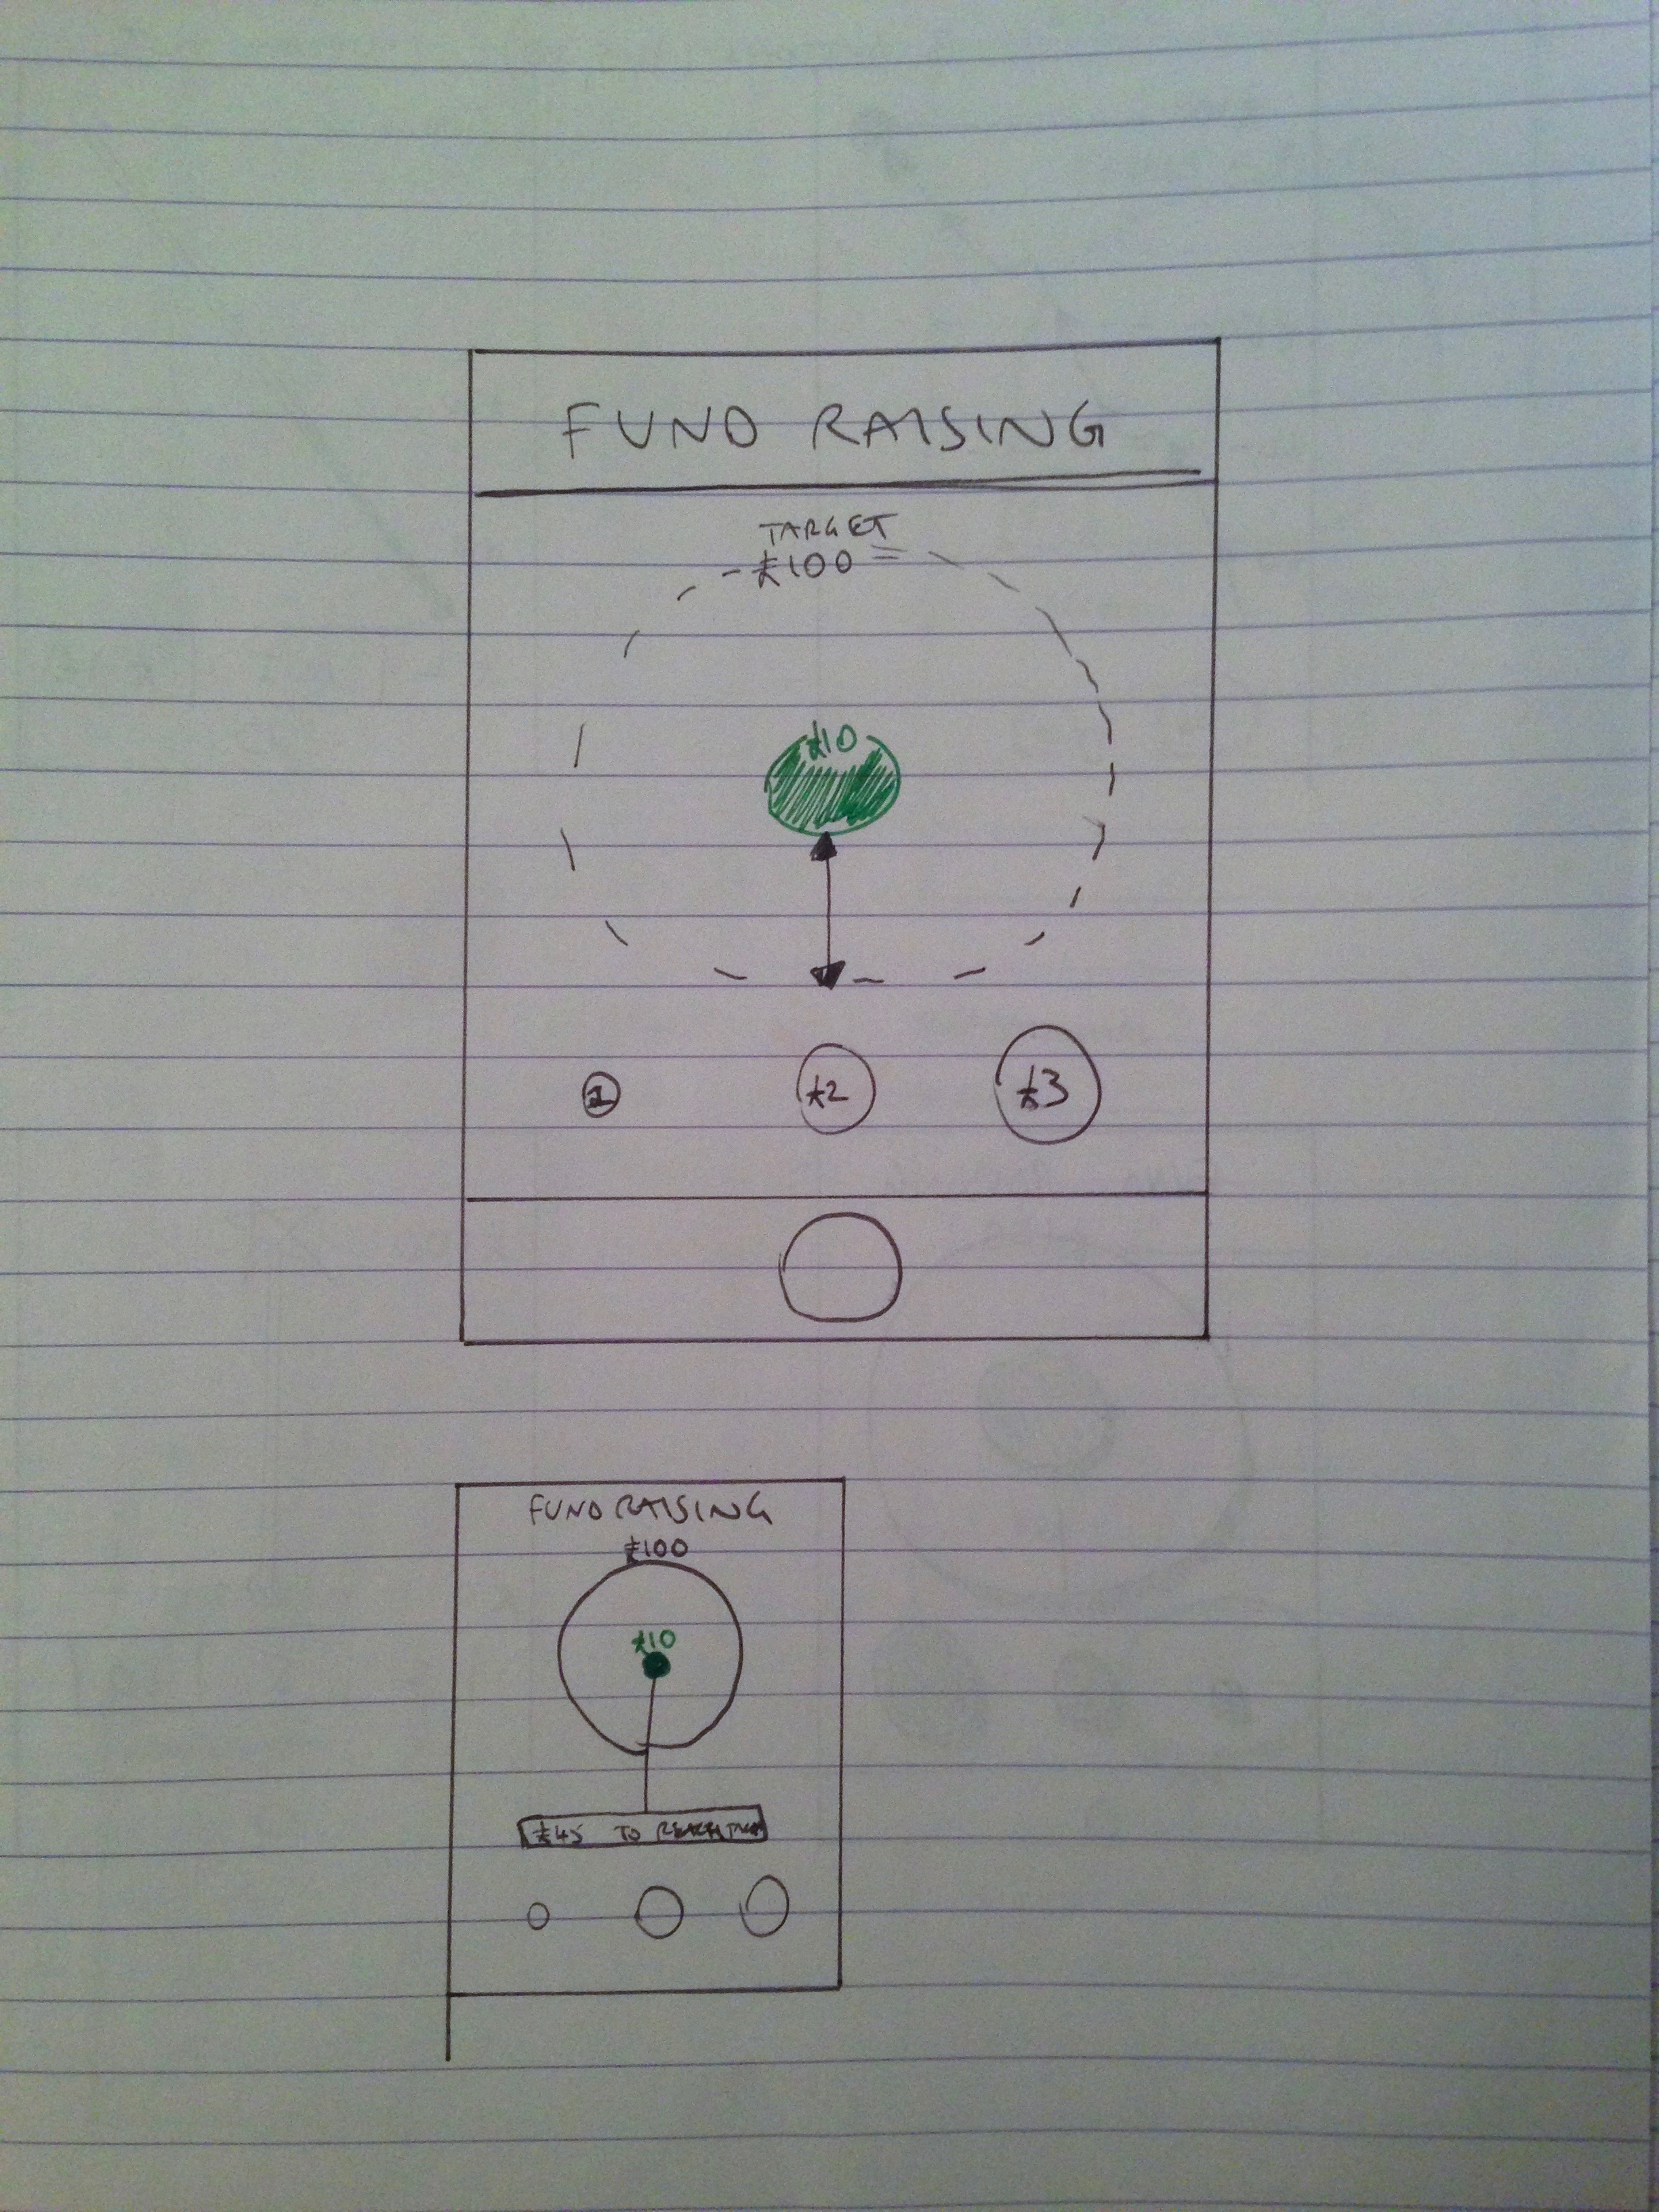 FUND RAISING
TARGET
£100
£10
1
£2
£3
FUND RAISING
£100
£10
£45 TO REACH